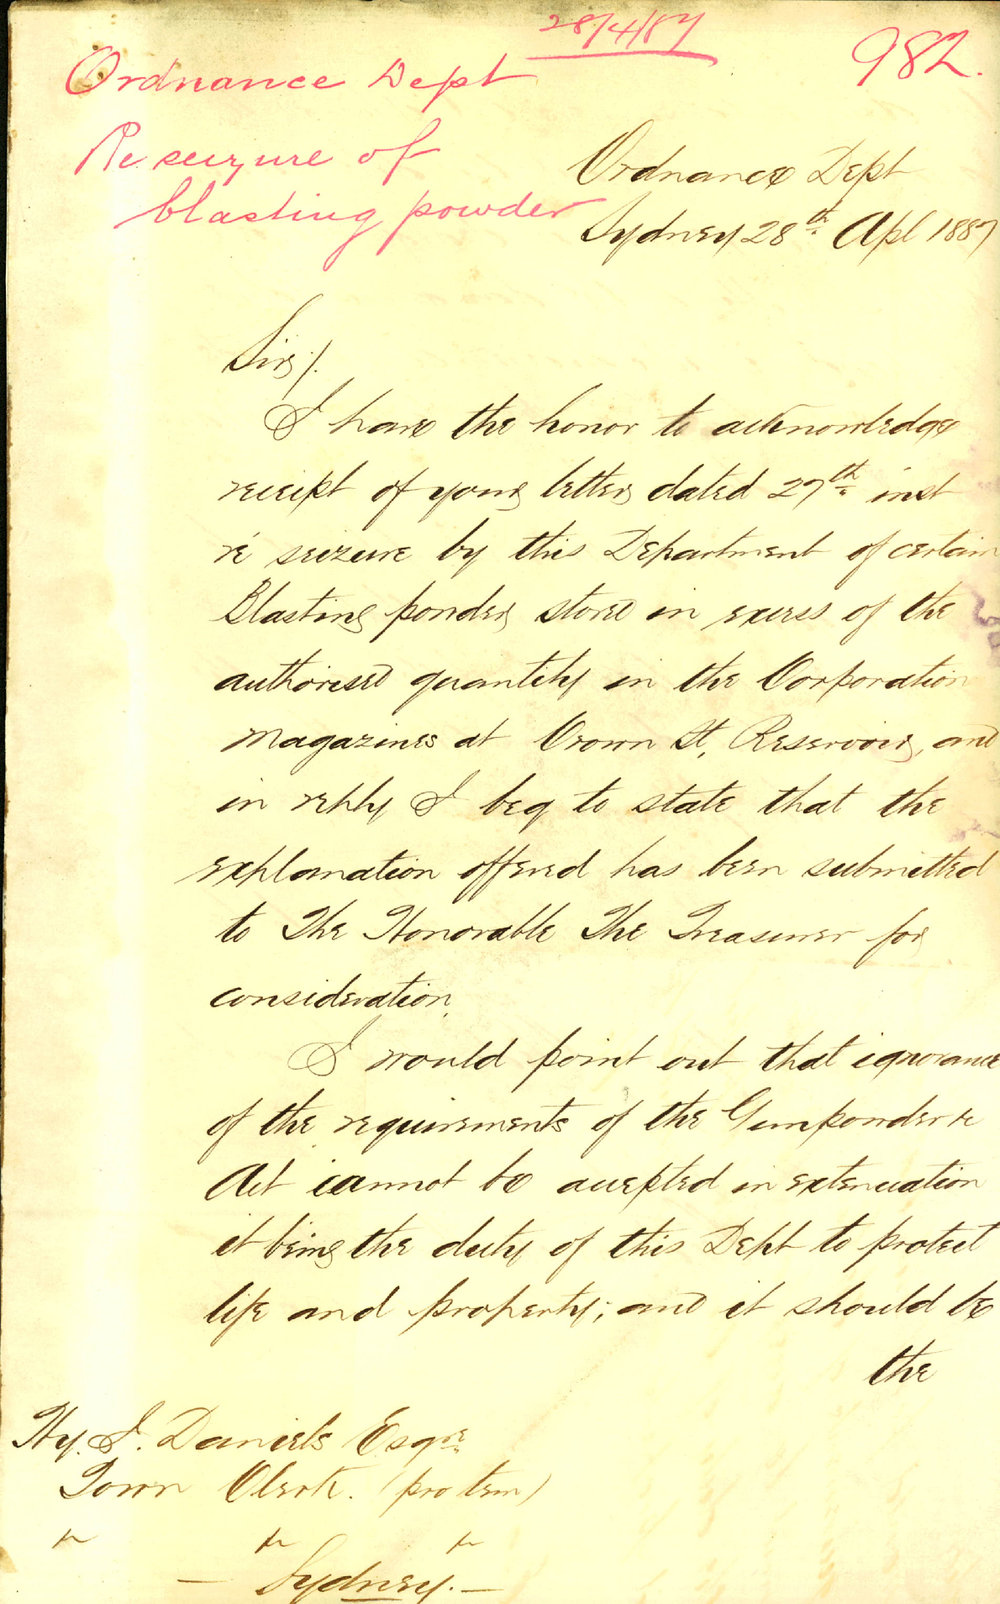 28/4/87
982.
Ordnance Dept
Re seizure of
blasting powder
Ordnance Dept
Sydney 28th Apl 1887
Sir/.
I have the honor to acknowledge
receipt of your letter dated 27th inst
ré seizure by this Department of certain
Blasting powder stored in excess of the
authorised quantity in the Corporation
Magazines at Crown St, Reservoir, and
in reply I beg to state that the
explanation offered has been submitted
to The Honorable The Treasurer for
consideration.
I would point out that ignorance
of the requirements of the Gunpowder &c
Act cannot be accepted in extenuation
it being the duty of this Dept to protect
life and property; and it should be
the
Hy. J. Daniels Esqre
Town Clerk. (pro tem)
" " "
— Sydney. —